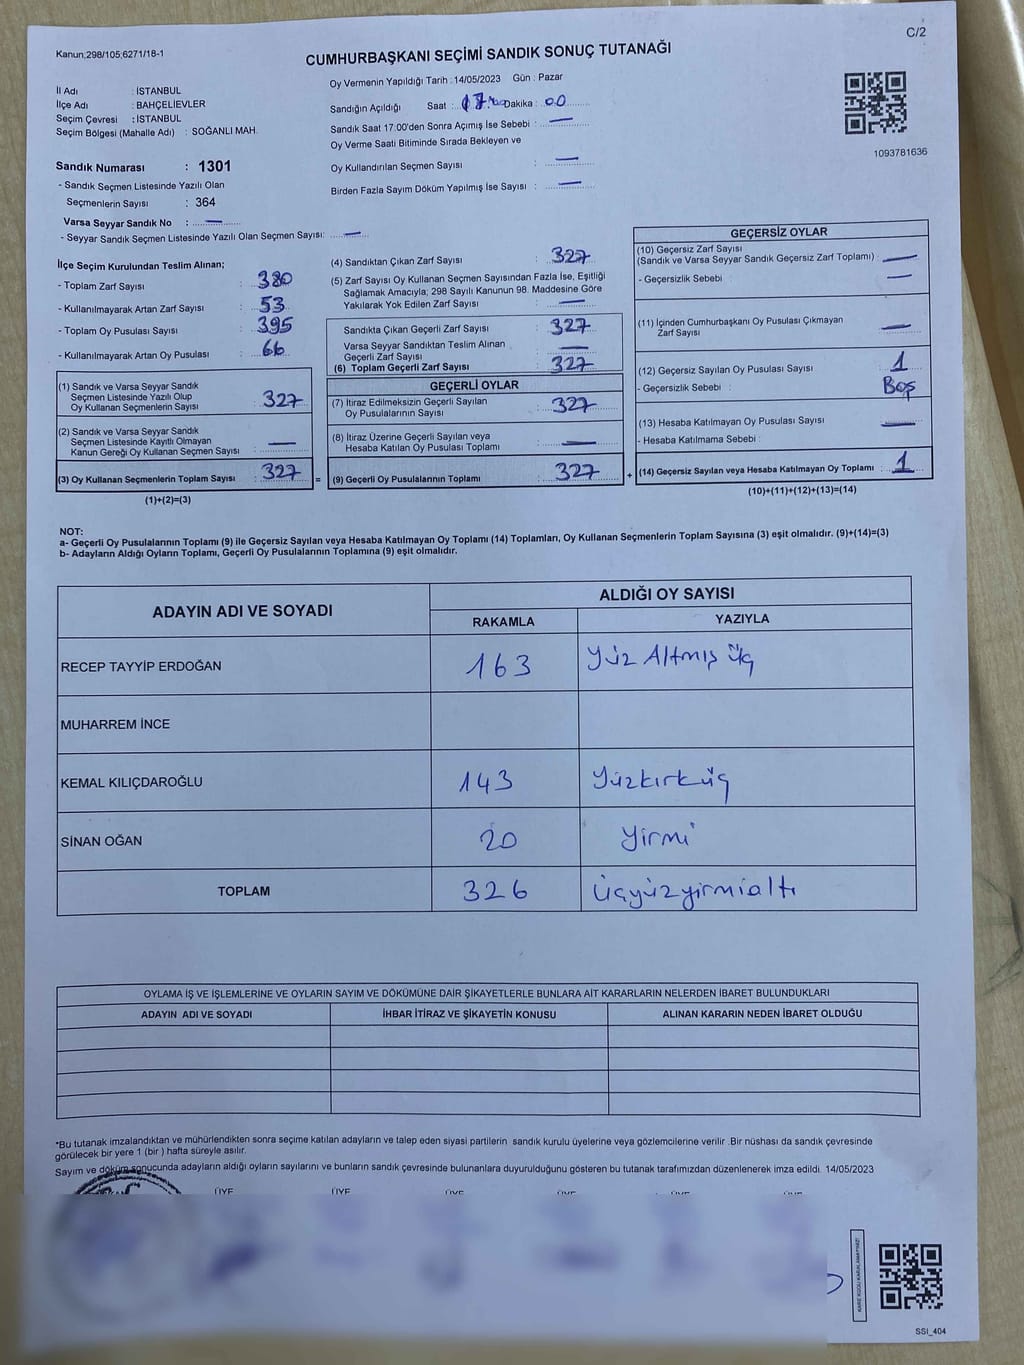 Kanun;298/105;6271/18-1
C/2
CUMHURBAŞKANI SEÇİMİ SANDIK SONUÇ TUTANAĞI
İl Adı : İSTANBUL
İlçe Adı : BAHÇELİEVLER
Seçim Çevresi : İSTANBUL
Seçim Bölgesi (Mahalle Adı) : SOĞANLI MAH.
Sandık Numarası : 1301
- Sandık Seçmen Listesinde Yazılı Olan
Seçmenlerin Sayısı : 364
Varsa Seyyar Sandık No : —
- Seyyar Sandık Seçmen Listesinde Yazılı Olan Seçmen Sayısı: —
Oy Vermenin Yapıldığı Tarih : 14/05/2023 Gün : Pazar
Sandığın Açıldığı Saat : 17:00 Dakika : 00
Sandık Saat 17:00'den Sonra Açımış İse Sebebi : —
Oy Verme Saati Bitiminde Sırada Bekleyen ve
Oy Kullandırılan Seçmen Sayısı : —
Birden Fazla Sayım Döküm Yapılmış İse Sayısı : —
1093781636
İlçe Seçim Kurulundan Teslim Alınan;
- Toplam Zarf Sayısı : 380
- Kullanılmayarak Artan Zarf Sayısı : 53
- Toplam Oy Pusulası Sayısı : 395
- Kullanılmayarak Artan Oy Pusulası : 66
(1) Sandık ve Varsa Seyyar Sandık
Seçmen Listesinde Yazılı Olup
Oy Kullanan Seçmenlerin Sayısı : 327
(2) Sandık ve Varsa Seyyar Sandık
Seçmen Listesinde Kayıtlı Olmayan
Kanun Gereği Oy Kullanan Seçmen Sayısı : —
(3) Oy Kullanan Seçmenlerin Toplam Sayısı : 327 =
(1)+(2)=(3)
(4) Sandıktan Çıkan Zarf Sayısı : 327
(5) Zarf Sayısı Oy Kullanan Seçmen Sayısından Fazla İse, Eşitliği
Sağlamak Amacıyla; 298 Sayılı Kanunun 98. Maddesine Göre
Yakılarak Yok Edilen Zarf Sayısı : —
Sandıkta Çıkan Geçerli Zarf Sayısı : 327
Varsa Seyyar Sandıktan Teslim Alınan
Geçerli Zarf Sayısı : —
(6) Toplam Geçerli Zarf Sayısı : 327
GEÇERLİ OYLAR
(7) İtiraz Edilmeksizin Geçerli Sayılan
Oy Pusulalarının Sayısı : 327
(8) İtiraz Üzerine Geçerli Sayılan veya
Hesaba Katılan Oy Pusulası Toplamı : —
(9) Geçerli Oy Pusulalarının Toplamı : 327 +
GEÇERSİZ OYLAR
(10) Geçersiz Zarf Sayısı
(Sandık ve Varsa Seyyar Sandık Geçersiz Zarf Toplamı) : —
- Geçersizlik Sebebi : —
(11) İçinden Cumhurbaşkanı Oy Pusulası Çıkmayan
Zarf Sayısı : —
(12) Geçersiz Sayılan Oy Pusulası Sayısı : 1
- Geçersizlik Sebebi : Boş
(13) Hesaba Katılmayan Oy Pusulası Sayısı : —
- Hesaba Katılmama Sebebi :
(14) Geçersiz Sayılan veya Hesaba Katılmayan Oy Toplamı : 1
(10)+(11)+(12)+(13)=(14)
NOT:
a- Geçerli Oy Pusulalarının Toplamı (9) ile Geçersiz Sayılan veya Hesaba Katılmayan Oy Toplamı (14) Toplamları, Oy Kullanan Seçmenlerin Toplam Sayısına (3) eşit olmalıdır. (9)+(14)=(3)
b- Adayların Aldığı Oyların Toplamı, Geçerli Oy Pusulalarının Toplamına (9) eşit olmalıdır.
ADAYIN ADI VE SOYADI
ALDIĞI OY SAYISI
RAKAMLA YAZIYLA
RECEP TAYYİP ERDOĞAN 163 Yüz Altmış üç
MUHARREM İNCE
KEMAL KILIÇDAROĞLU 143 Yüzkırküç
SİNAN OĞAN 20 Yirmi
TOPLAM 326 Üçyüzyirmialtı
OYLAMA İŞ VE İŞLEMLERİNE VE OYLARIN SAYIM VE DÖKÜMÜNE DAİR ŞİKAYETLERLE BUNLARA AİT KARARLARIN NELERDEN İBARET BULUNDUKLARI
ADAYIN ADI VE SOYADI İHBAR İTİRAZ VE ŞİKAYETİN KONUSU ALINAN KARARIN NEDEN İBARET OLDUĞU
*Bu tutanak imzalandıktan ve mühürlendikten sonra seçime katılan adayların ve talep eden siyasi partilerin sandık kurulu üyelerine veya gözlemcilerine verilir .Bir nüshası da sandık çevresinde
görülecek bir yere 1 (bir ) hafta süreyle asılır.
Sayım ve döküm sonucunda adayların aldığı oyların sayılarını ve bunların sandık çevresinde bulunanlara duyurulduğunu gösteren bu tutanak tarafımızdan düzenlenerek imza edildi. 14/05/2023
ÜYE ÜYE ÜYE ÜYE ÜYE ÜYE
SSI_404